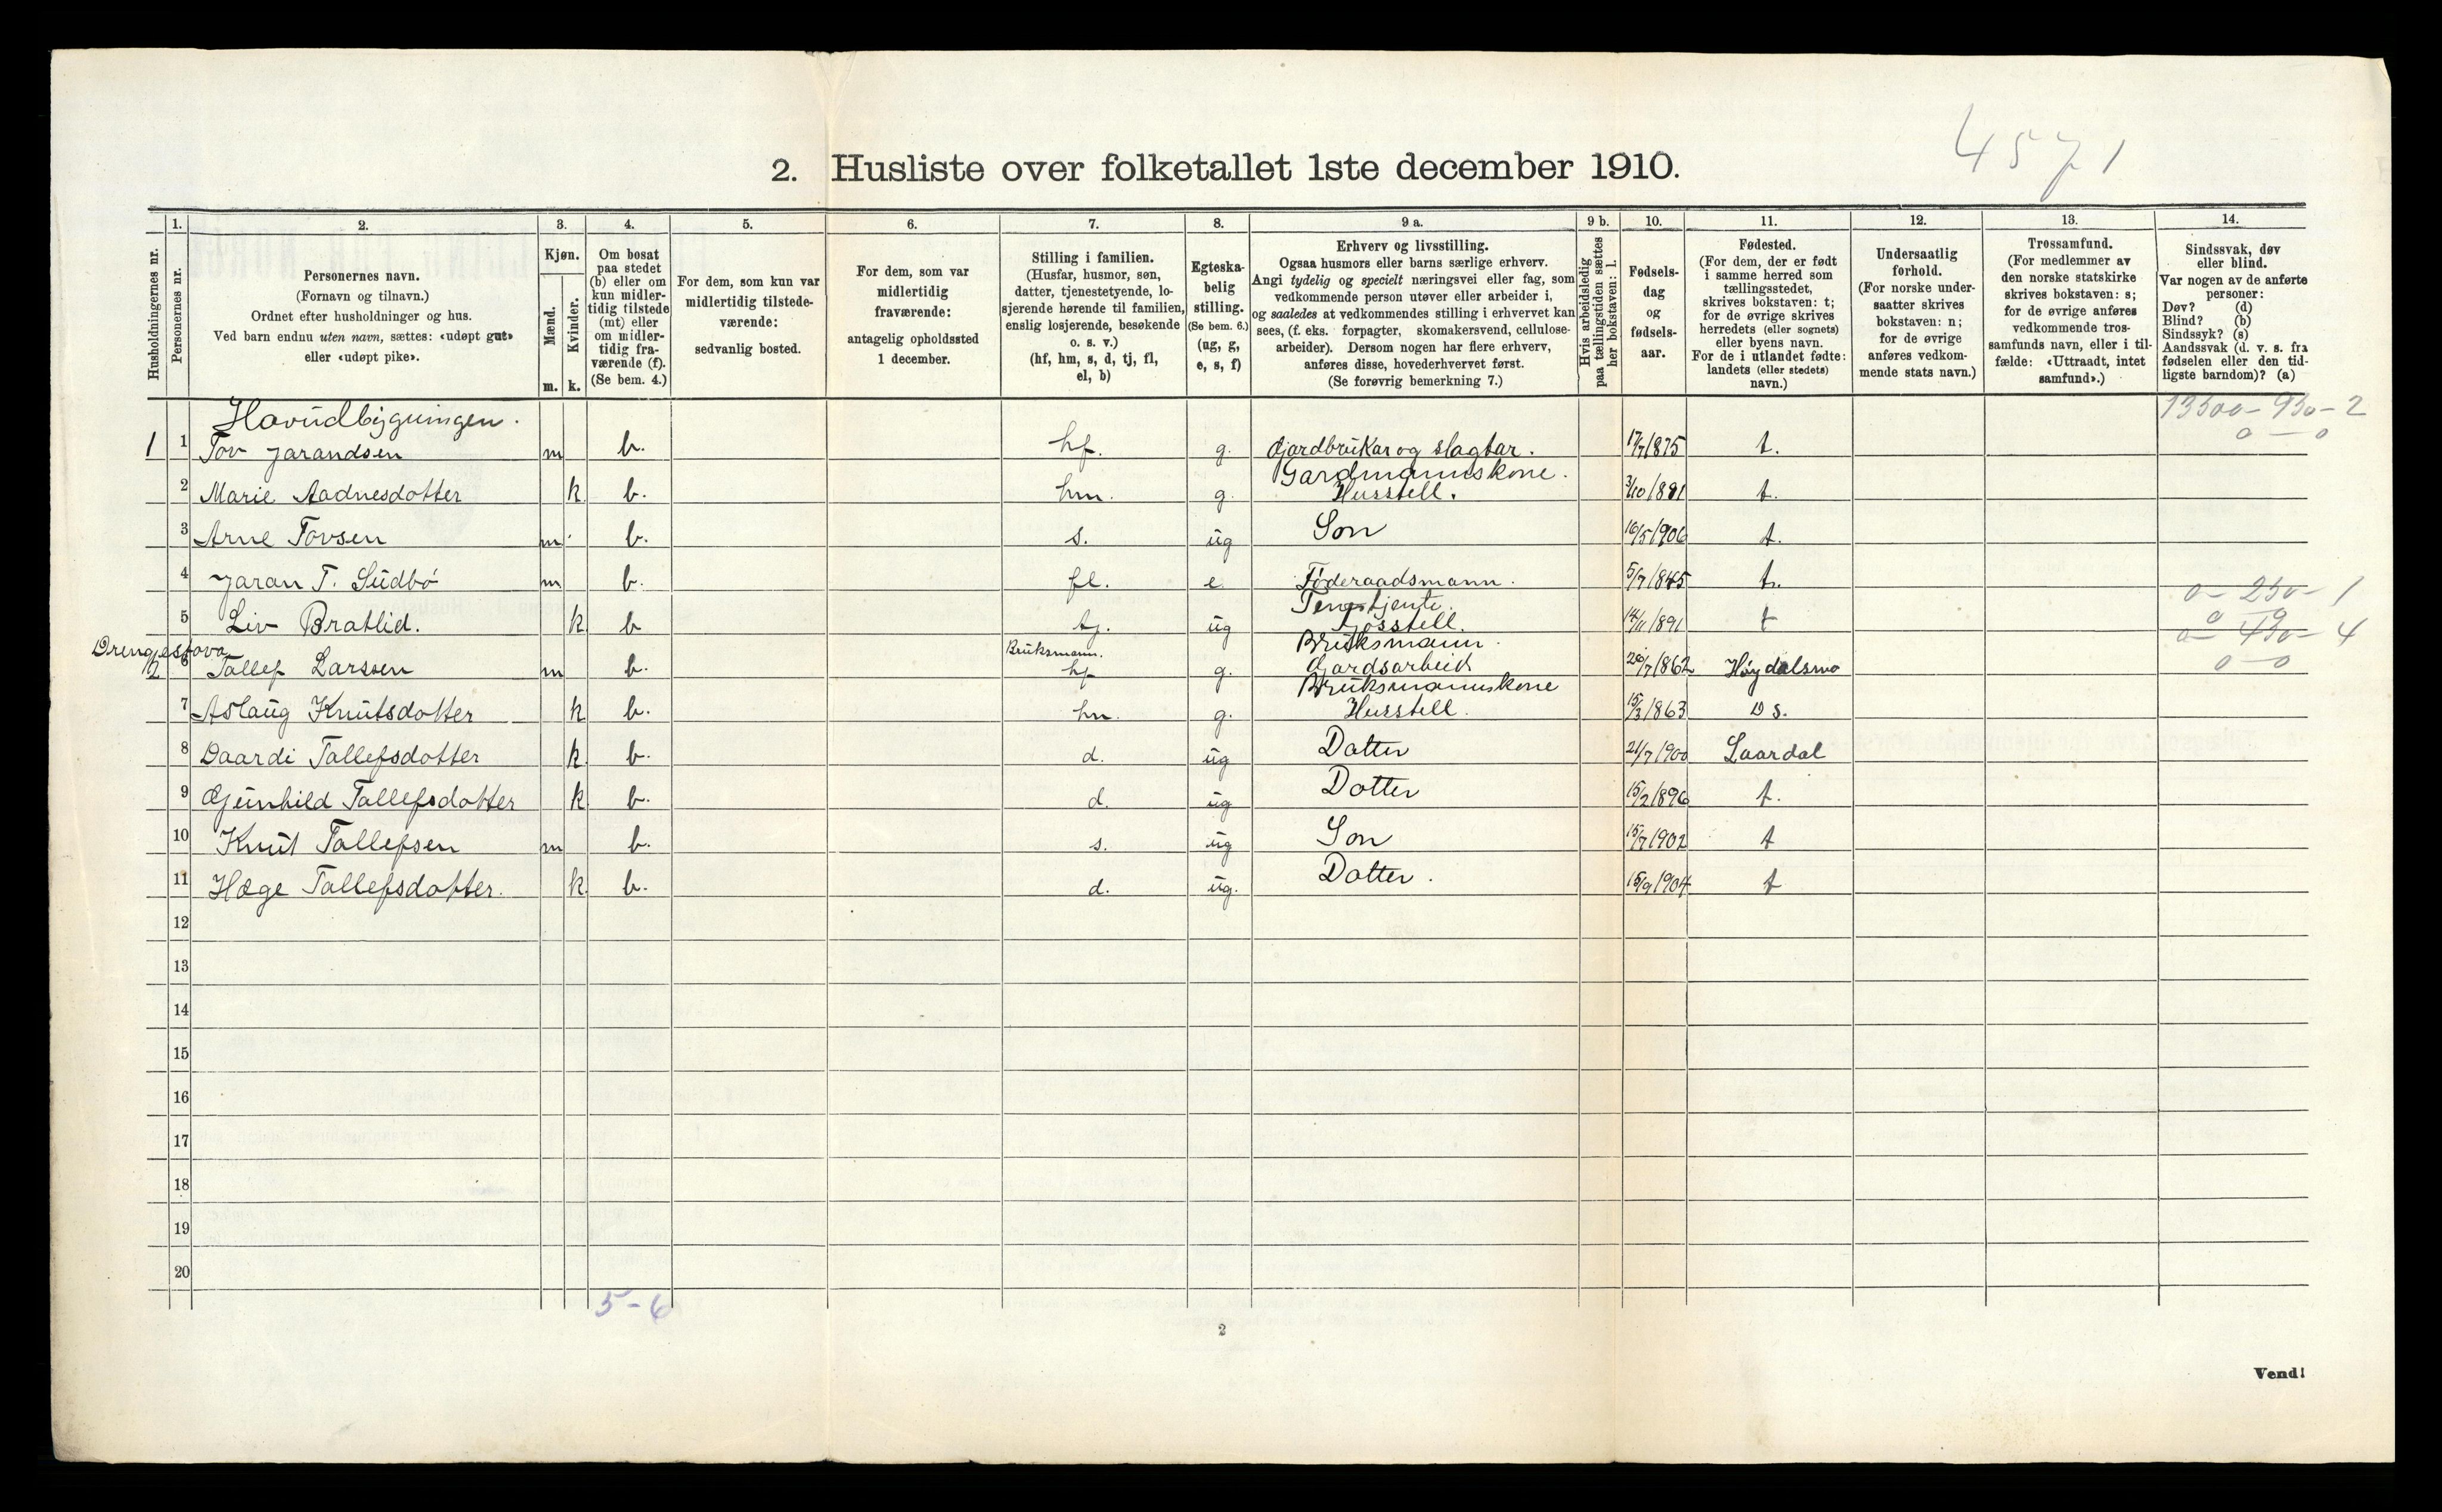 4571
2. Husliste over folketallet 1ste december 1910.
Husholdningernes nr.
1.
Personernes nr.
2.
Personernes navn.
(Fornavn og tilnavn.)
Ordnet efter husholdninger og hus.
Ved barn endnu uten navn, sættes: «udøpt gut»
eller «udøpt pike».
3.
Kjøn.
Mænd.
Kvinder.
m. k.
4.
Om bosat
paa stedet
(b) eller om
kun midler-
tidig tilstede
(mt) eller
om midler-
tidig fra-
værende (f).
(Se bem. 4.)
5.
For dem, som kun var
midlertidig tilstede-
værende:
sedvanlig bosted.
6.
For dem, som var
midlertidig
fraværende:
antagelig opholdssted
1 december.
7.
Stilling i familien.
(Husfar, husmor, søn,
datter, tjenestetyende, lo-
sjerende hørende til familien,
enslig losjerende, besøkende
o. s. v.)
(hf, hm, s, d, tj, fl,
el, b)
8.
Egteska-
belig
stilling.
(Se bem. 6.)
(ug, g,
e, s, f)
9 a.
Erhverv og livsstilling.
Ogsaa husmors eller barns særlige erhverv.
Angi tydelig og specielt næringsvei eller fag, som
vedkommende person utøver eller arbeider i,
og saaledes at vedkommendes stilling i erhvervet kan
sees, (f. eks. forpagter, skomakersvend, cellulose-
arbeider). Dersom nogen har flere erhverv,
anføres disse, hovederhvervet først.
(Se forøvrig bemerkning 7.)
9 b.
Hvis arbeidsledig
paa tællingstiden sættes
her bokstaven: l.
10.
Fødsels-
dag
og
fødsels-
aar.
11.
Fødested.
(For dem, der er født
i samme herred som
tællingsstedet,
skrives bokstaven: t;
for de øvrige skrives
herredets (eller sognets)
eller byens navn.
For de i utlandet fødte:
landets (eller stedets)
navn.)
12.
Undersaatlig
forhold.
(For norske under-
saatter skrives
bokstaven: n;
for de øvrige
anføres vedkom-
mende stats navn.)
13.
Trossamfund.
(For medlemmer av
den norske statskirke
skrives bokstaven: s;
for de øvrige anføres
vedkommende tros-
samfunds navn, eller i til-
fælde: «Uttraadt, intet
samfund».)
14.
Sindssvak, døv
eller blind.
Var nogen av de anførte
personer:
Døv? (d)
Blind? (b)
Sindssyk? (s)
Aandssvak (d. v. s. fra
fødselen eller den tid-
ligste barndom)? (a)
Hovudbygningen. 13500-930-2
0-0
1 1 Tov Jarandsen m b. hf. g. Gardbrukar og slagtar. 17/7 1875 t.
Gardmannskone.
2 Marie Aadnesdotter k b. hm. g. Husstell. 3/10 1881 t.
3 Arne Tovsen m b. s. ug Son 16/5 1906 t.
4 Jaran T. Sudbö m b. fl. e Föderaadsmann. 5/7 1845 t.
Tenestjente. 0-250-1
5 Liv Bratlid. k b tj. ug Fjösstell. 14/11 1891 t
Drengestova Bruksmann. Bruksmann. 0-430-4
2 6 Tallef Larssen m b. hf g. Gardsarbeid 20/7 1862 Höydalsmo 0-0
Bruksmannskone
7 Aslaug Knutsdotter k b. hm. g. Husstell. 15/3 1863 Ds.
8 Daardi Tallefsdotter k b. d. ug Dotter 21/7 1900 Laardal
9 Gunhild Tallefsdotter k b. d. ug Dotter 15/2 1896 t.
10 Knut Tallefsen m b. s. ug Son 15/7 1902 t
11 Hæge Tallefsdotter. k b. d. ug. Dotter. 15/9 1904 t
12
13
14
15
16
17
18
19
20
5-6
2
Vend!